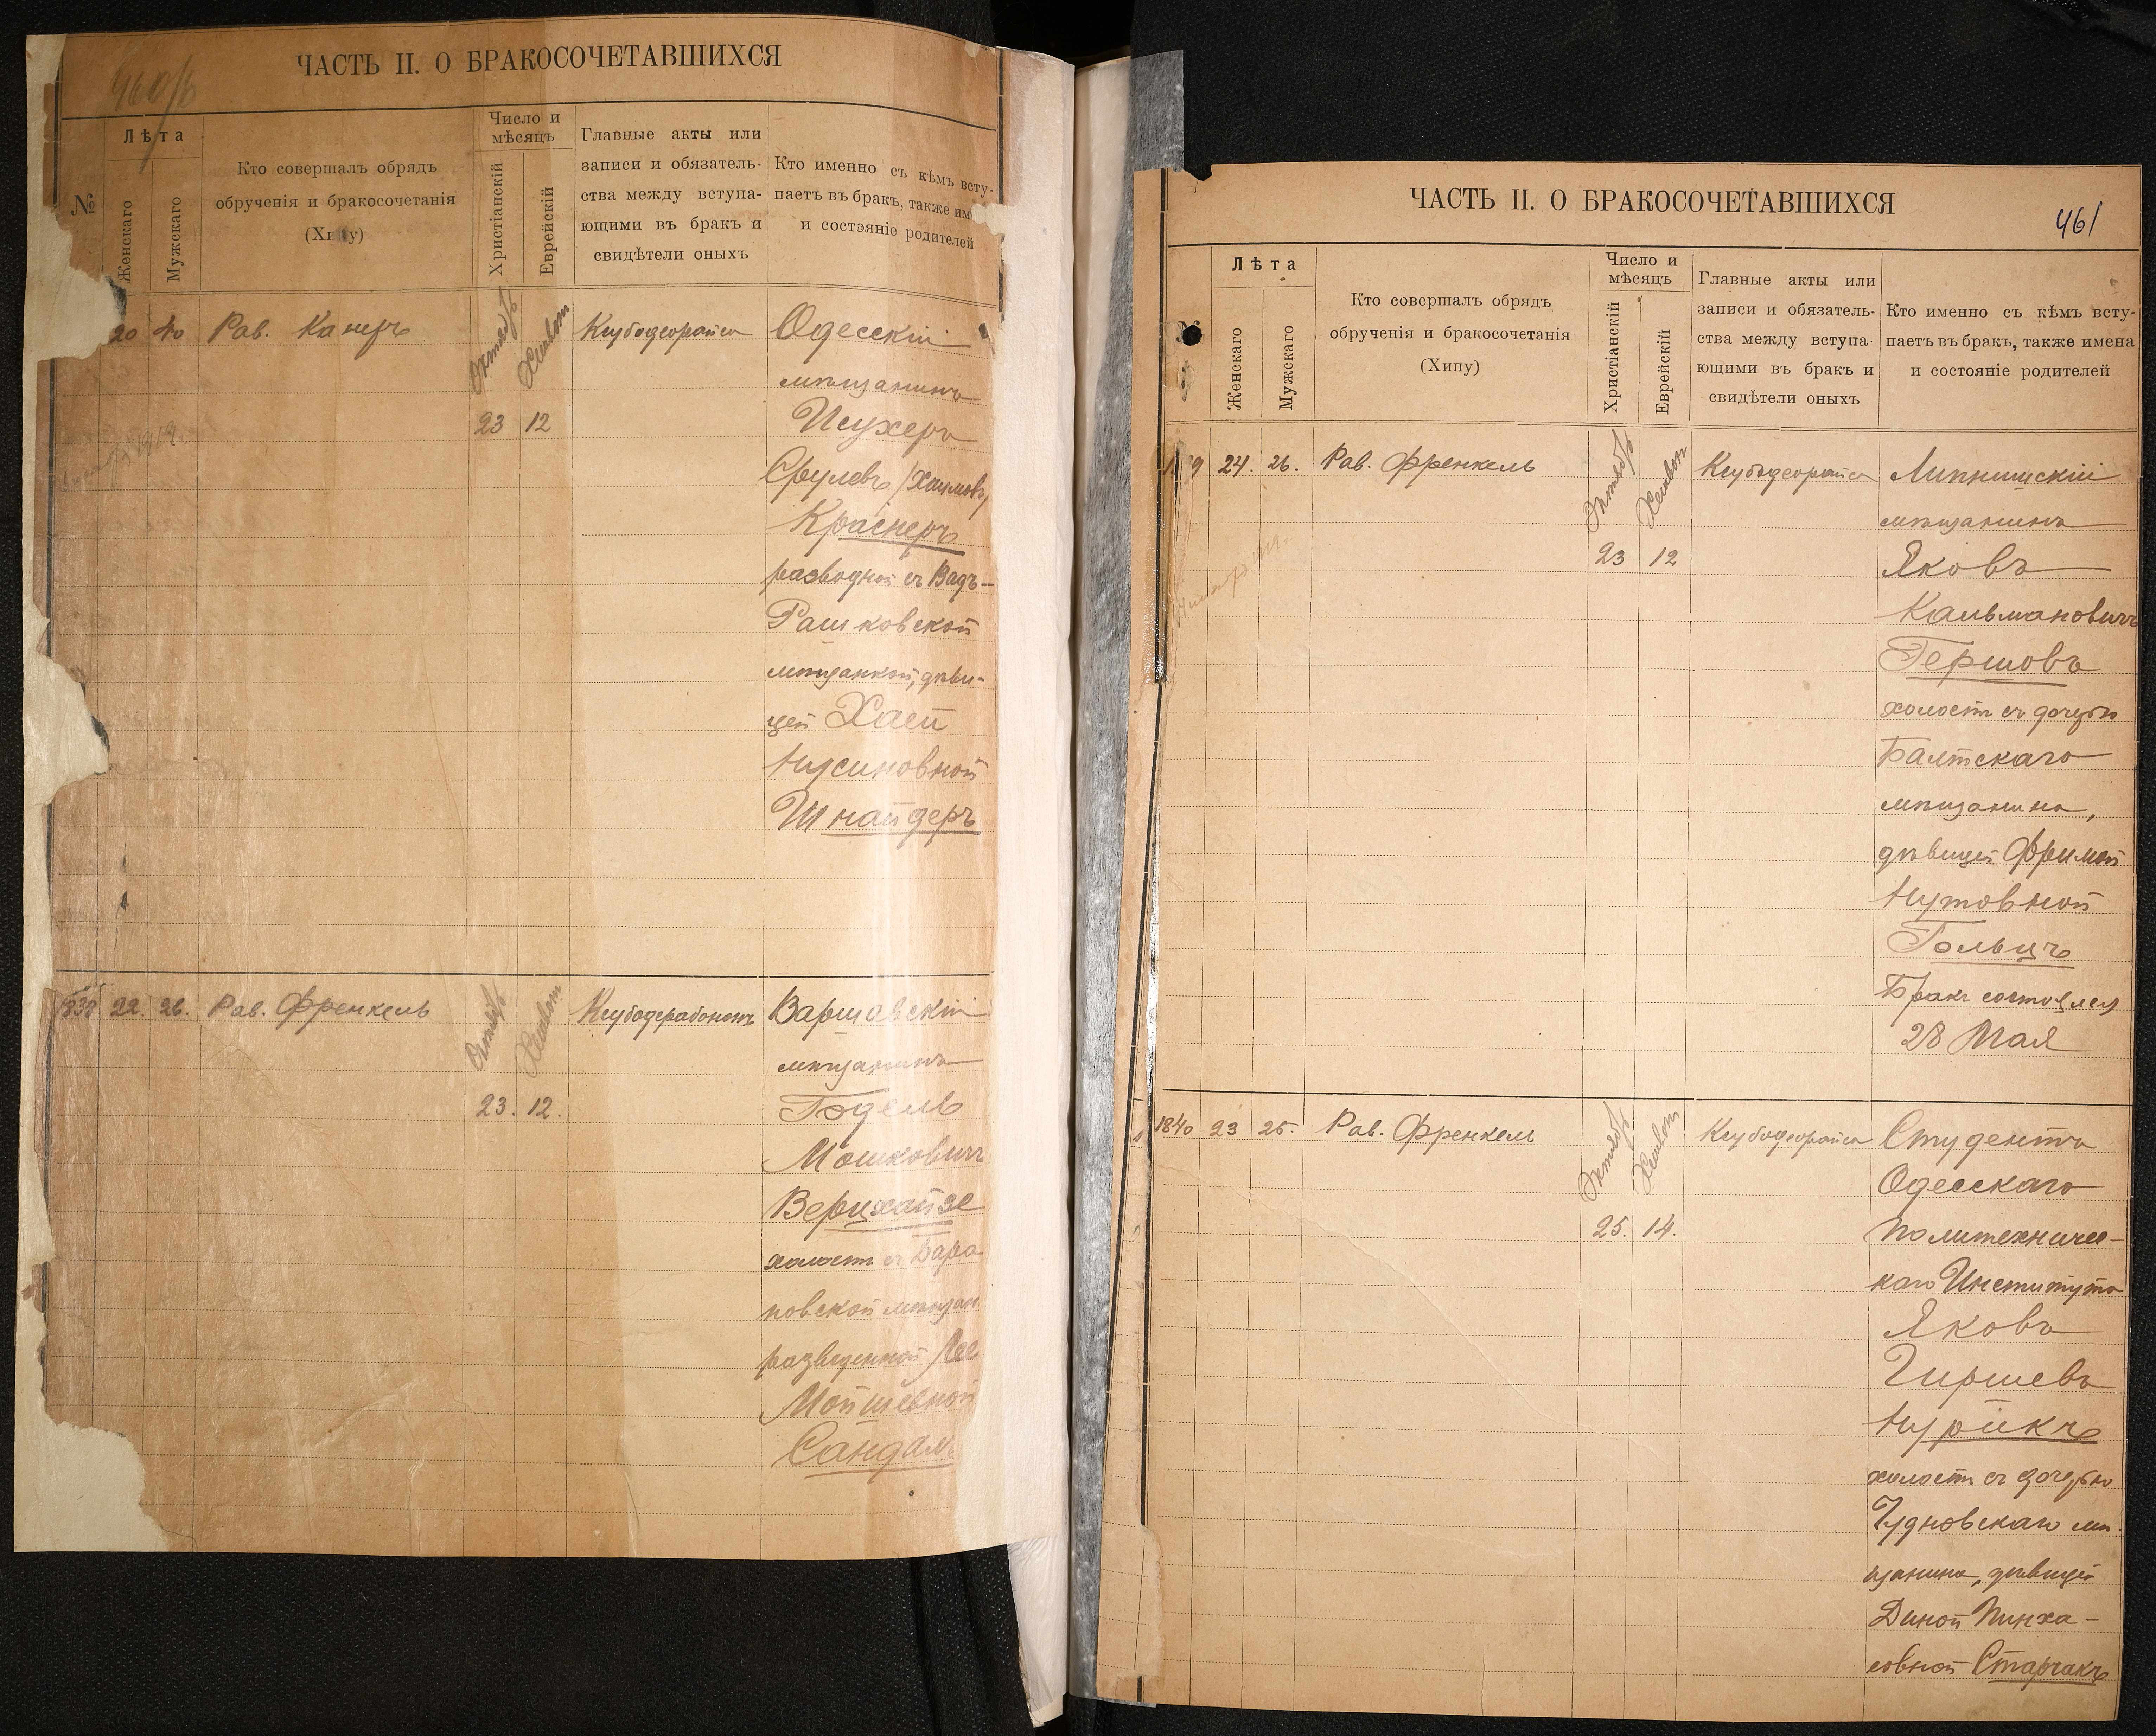 ЧАСТЬ II. О БРАКОСОЧЕТАВШИХСЯ
№
Лѣта
Женскаго
Мужскаго
Кто совершалъ обрядъ
обрученія и бракосочетанія
Число и
мѣсяцъ
Христіанскій
Еврейскій
Главные акты или
записи и обязатель-
ства между вступа-
ющими въ бракъ и
свидѣтели оныхъ
Кто именно съ кѣмъ всту-
паетъ въ бракъ, также им
и состояніе родителей
20 40 Рав. Канеръ Октябр Хешвон Ксубодеорайса Одесскій
мѣщанинъ
23 12 Исухеръ
Срулевъ /Хаимовъ/
Краснеръ
разводной съ Вадъ-
Рашковской
мѣщанкой, дѣви-
цей Хаей
Нусиновной
Шнайдеръ
1838 22. 26. Рав. Френкель Октябр Хешвон Варшавскій
мѣщанинъ
23. 12. Годель
Мошковичъ
Верцхайзе
холостъ съ Бара
новской мѣщан
разведенной Лее
Мойшевной
Сандал
ЧАСТЬ II. О БРАКОСОЧЕТАВШИХСЯ
461
Лѣта
Женскаго
Мужскаго
Кто совершалъ обрядъ
обрученія и бракосочетанія
(Хипу)
Число и
мѣсяцъ
Христіанскій
Еврейскій
Главные акты или
записи и обязатель-
ства между вступа-
ющими въ бракъ и
свидѣтели оныхъ
Кто именно съ кѣмъ всту-
паетъ въ бракъ, также имена
и состояніе родителей
24. 26. Рав. Френкель Октябр Хешвон Ксубодеорайса Липнишскій
мѣщанинъ
23 12 Яковъ
Кальмановичъ
Гершовъ
холостъ съ дочерью
Балтскаго
мѣщанина,
дѣвицей Фримой
Нутовной
Гольцъ
Бракъ состоялся
28 Мая
1840 23 25. Рав. Френкель Октябр Хешвон Ксубодеорайса Студентъ
Одесскаго
25. 14. Политехничес-
каго Института
Яковъ
Гиршевъ
Нурикъ
холостъ съ дочерью
Чудновскаго мѣ-
щанина, дѣвицей
Диной Пинха-
совной Старчакъ